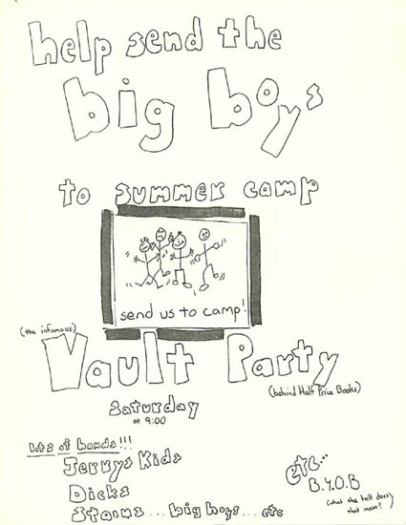 help send the
big boys
to summer camp
send us to camp!
(the infamous)
Vault Party
(behind Half Price Books)
Saturday
at 9:00
lots of bands!!!
Jerrys Kids
Dicks
Stains... big boys... etc
etc...
B.Y.O.B
(what the hell does
that mean?